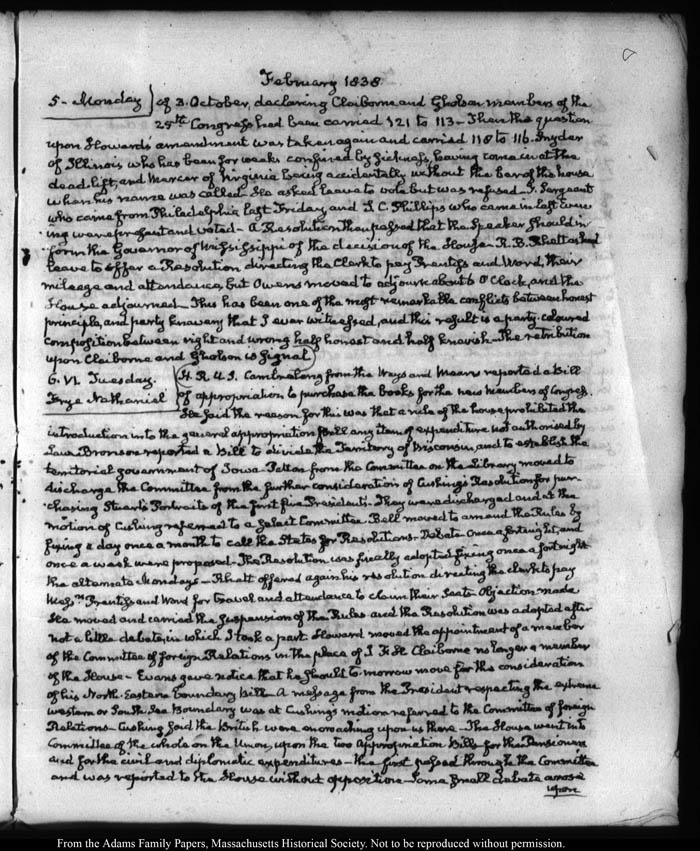 February 1838.
5 - Monday of 3. October, declaring Claiborne and Gholson members of the
25th Congress had been carried 121 to 113 - Then the question
upon Howard's amendment was taken again and carried 118 to 116. Snyder
of Illinois, who has been for weeks confined by sickness, having come in at the
dead lift, and Mercer of Virginia being accidentally without the bar of the house
when his name was called. He asked leave to vote but was refused. J. Sergeant
who came from Philadelphia last Friday, and S. C. Phillips who came in last even
ing were present and voted - A Resolution then passed that the Speaker should in
form the Governor of Mississippi of the decision of the House - R. B. Rhett asked
leave to offer a Resolution directing the Clerk to pay Prentiss and Word, their
mileage and attendance, but Owens moved to adjourn about 6 O'Clock, and the
House adjourned - This has been one of the most remarkable conflicts between honest
principle, and party knavery that I ever witnessed, and this result is a party-coloured
composition between right and wrong half honest and half knavish - The retribution
upon Claiborne and Gholson is signal
6. VI. Tuesday. H. R. U. S. Cambreleng from the Ways and Means reported a Bill
Frye Nathaniel of appropriation to purchase the books for the new members of Congress.
He said the reason for this was that a rule of the house prohibited the
introduction into the general appropriation Bill any item of expenditure not authorised by
Law. Bronson reported a Bill to divide the Territory of Wisconsin, and to establish the
territorial government of Iowa. Patton from the Committee on the Library moved to
discharge the Committee from the further consideration of Cushing's Resolution for pur
chasing Stuart's Portraits of the first five Presidents. They were discharged and at the
motion of Cushing referred to a Select Committee. Bell moved to amend the Rules by
fixing a day once a month to call the States for Resolutions. Debate once a fortnight, and
once a week were proposed - The Resolution was finally adopted fixing once a fortnight
the alternate Mondays - Rhett offered again his resolution directing the clerk to pay
Messrs Prentiss and Word for travel and attendance to claim their Seats. Objection made
He moved and carried the suspension of the Rules and the Resolution was adopted after
not a little debate, in which I took a part. Howard moved the appointment of a member
of the Committee of foreign Relations in the place of J F H Claiborne no longer a member
of the House - Evans gave notice that he should to-morrow move for the consideration
of his North-Eastern boundary bill - A message from the President respecting the extreme
western or South Sea Boundary was at Cushing's motion referred to the Committee of foreign
Relations - Cushing said the British were encroaching upon us there - The House went into
Committee of the whole on the Union, upon the two appropriation Bills for the Pensioners
and for the civil and diplomatic expenditures - the first passed through the Committee
and was reported to the House without opposition. Some small debate arose
upon
From the Adams Family Papers, Massachusetts Historical Society. Not to be reproduced without permission.